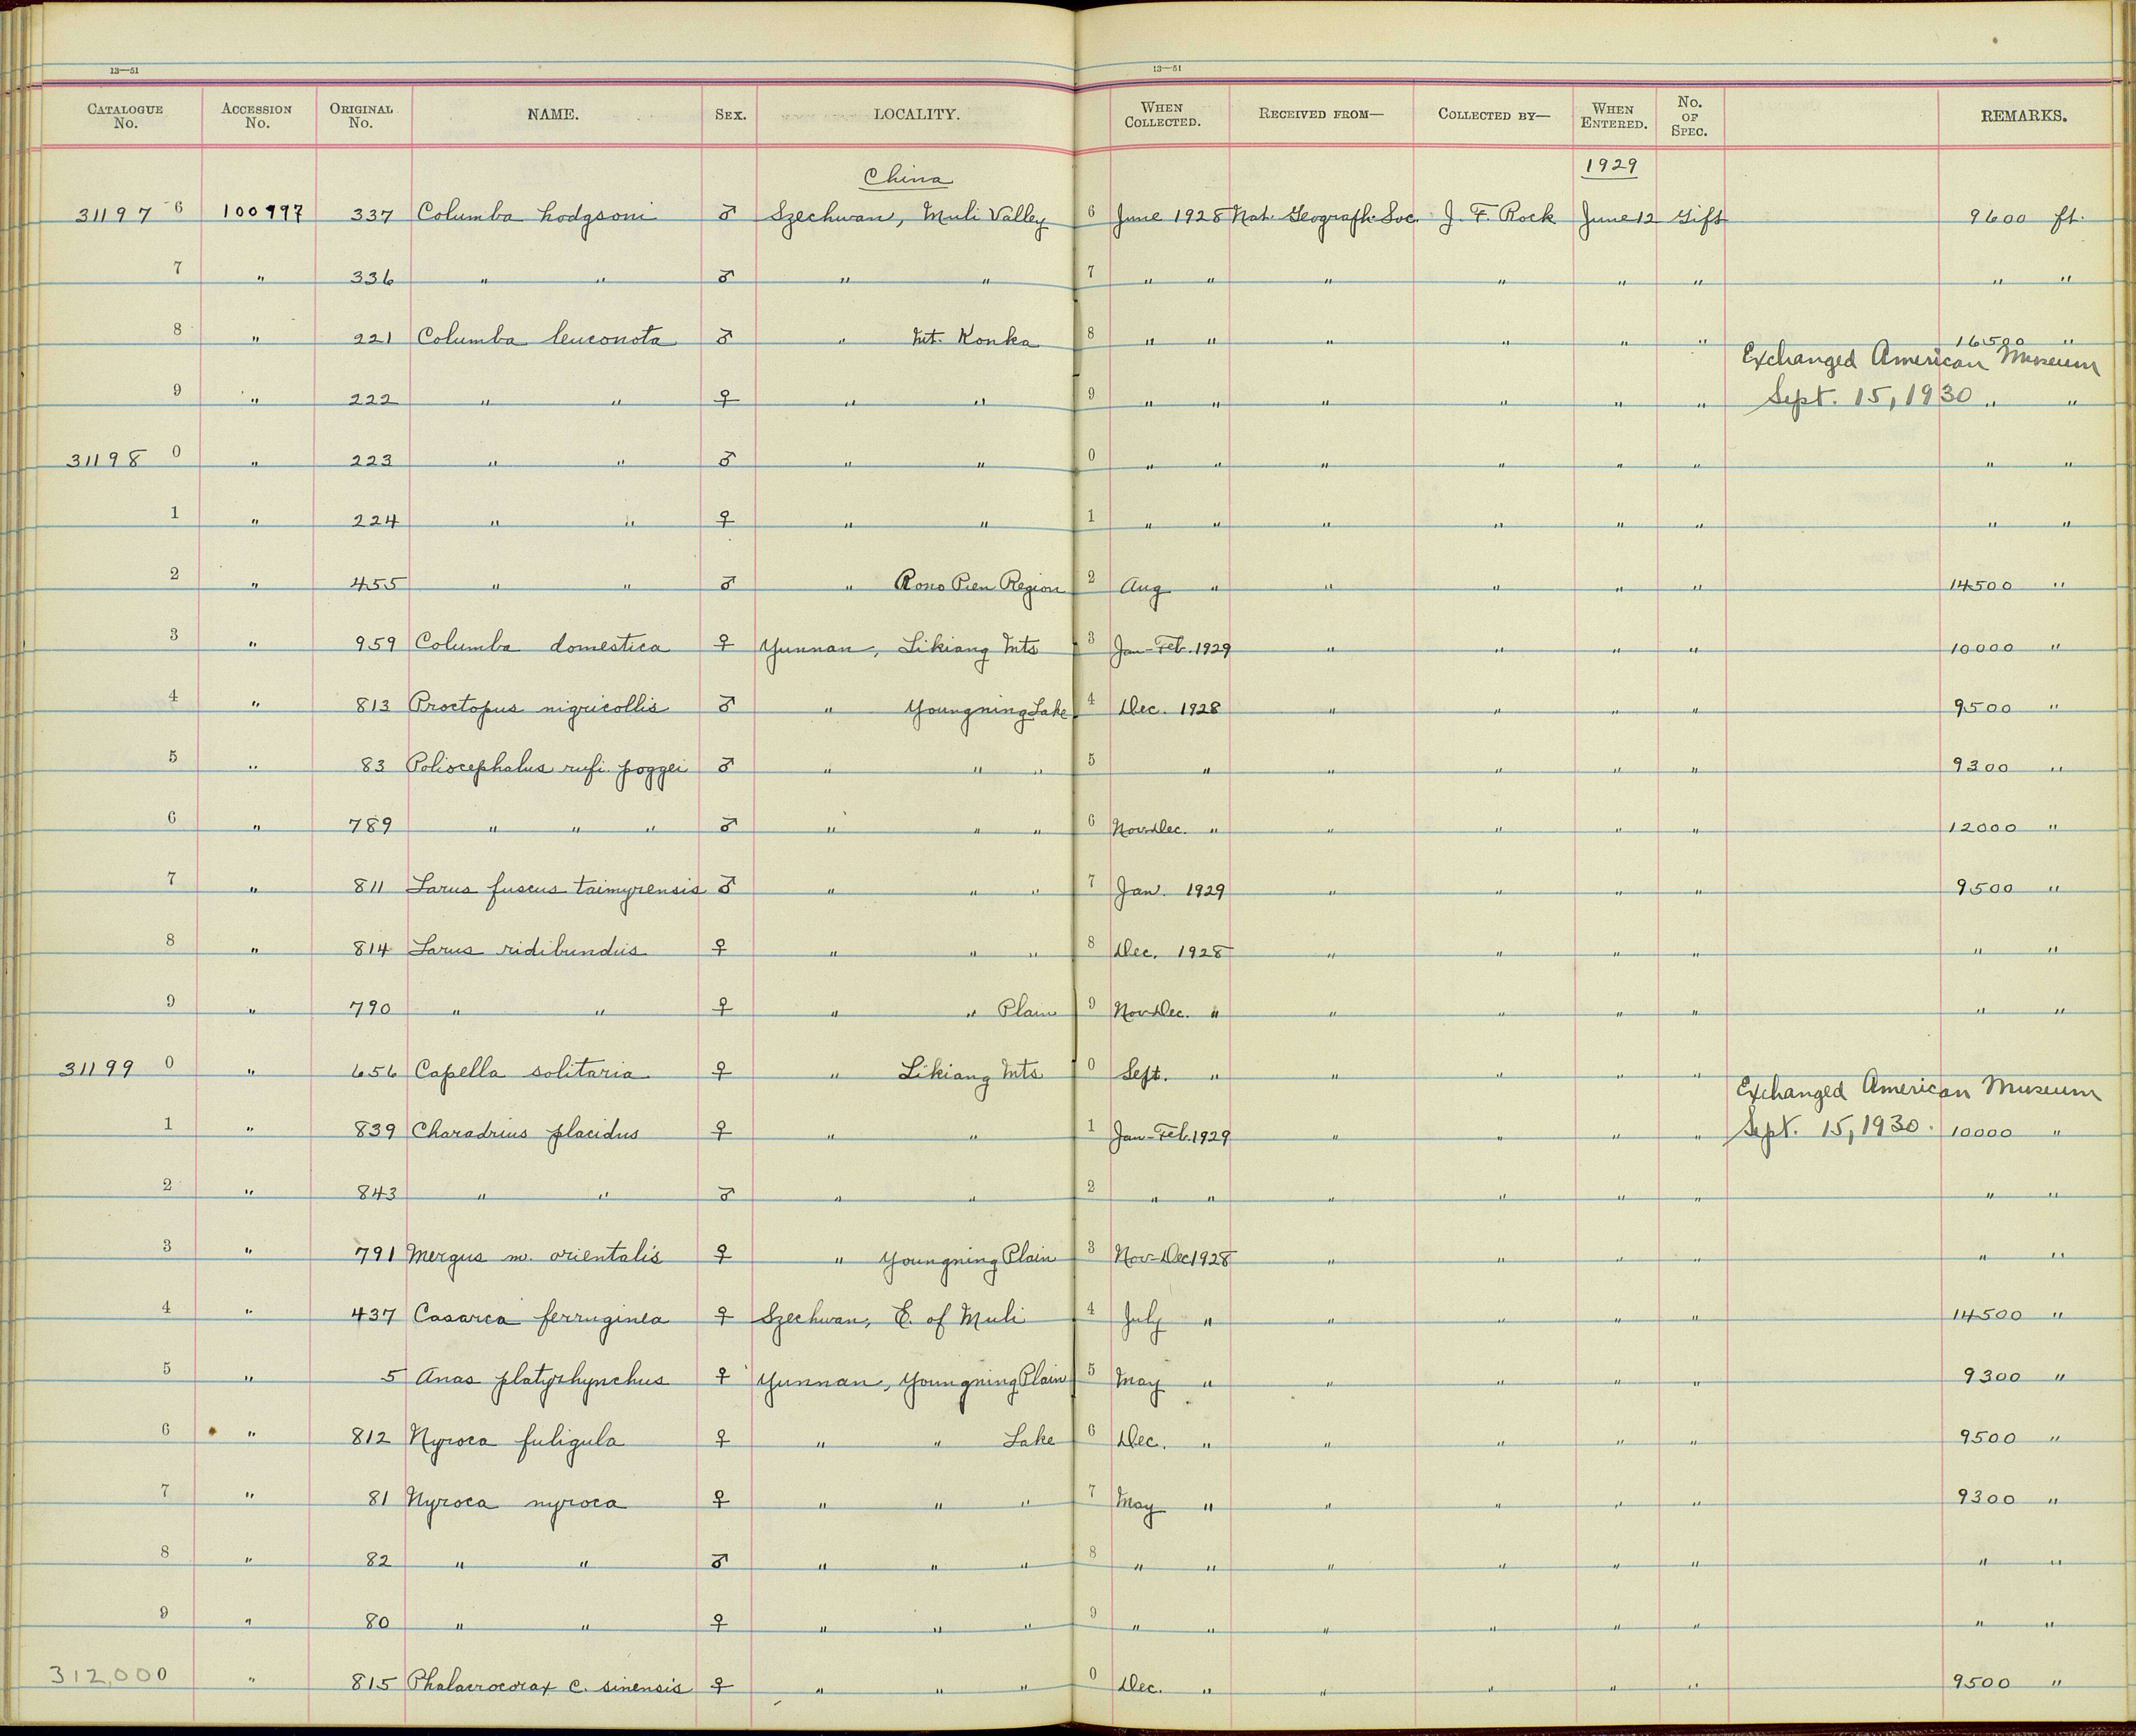 13—51 13—51
CATALOGUE No. ACCESSION No. ORIGINAL No. NAME. SEX. LOCALITY. WHEN COLLECTED. RECEIVED FROM— COLLECTED BY— WHEN ENTERED. No. OF SPEC. REMARKS.
China 1929
31197 6 100997 337 Columba hodgsoni ♂ Szechwan, Muli Valley 6 June 1928 Nat. Geograph. Soc. J. F. Rock June 12 Gift 9600 ft.
7 " 336 " " ♂ " " 7 " " " " " " " "
8 " 221 Columba leuconota ♂ " Mt. Konka 8 " " " " " " 16500 "
Exchanged American Museum
9 " 222 " " ♀ " " 9 " " " " " " Sept. 15, 1930 " "
31198 0 " 223 " " ♂ " " 0 " " " " " " " "
1 " 224 " " ♀ " " 1 " " " " " " " "
2 " 455 " " ♂ " Region 2 Aug " " " " " 14500 "
3 " 959 Columba domestica ♀ Yunnan, Likiang Mts 3 Jan-Feb. 1929 " " " " 10000 "
4 " 813 Proctopus nigricollis ♂ " Youngning Lake 4 Dec. 1928 " " " " 9500 "
5 " 83 Poliocephalus rufi. poggei ♂ " " " 5 " " " " " 9300 "
6 " 789 " " " ♂ " " " 6 Nov-Dec. " " " " " 12000 "
7 " 811 Larus fuscus taimyrensis ♂ " " " 7 Jan. 1929 " " " " 9500 "
8 " 814 Larus ridibundus ♀ " " " 8 Dec. 1928 " " " " " "
9 " 790 " " ♀ " " Plain 9 Nov-Dec. " " " " " " "
31199 0 " 656 Capella solitaria ♀ " Likiang Mts 0 Sept. " " " " "
Exchanged American Museum
1 " 839 Charadrius placidus ♀ " " 1 Jan-Feb. 1929 " " " " Sept. 15, 1930. 10000 "
2 " 843 " " ♂ " " 2 " " " " " " " "
3 " 791 Mergus m. orientalis ♀ " Youngning Plain 3 Nov-Dec 1928 " " " " " "
4 " 437 Casarca ferruginea ♀ Szechwan, E. of Muli 4 July " " " " " 14500 "
5 " 5 Anas platyrhynchus ♀ Yunnan, Youngning Plain 5 May " " " " " 9300 "
6 " 812 Nyroca fuligula ♀ " " Lake 6 Dec. " " " " " 9500 "
7 " 81 Nyroca nyroca ♀ " " " 7 May " " " " " 9300 "
8 " 82 " " ♂ " " " 8 " " " " " " " "
9 " 80 " " ♀ " " " 9 " " " " " " " "
312,000 " 815 Phalacrocorax c. sinensis ♀ " " " 0 Dec. " " " " " 9500 "